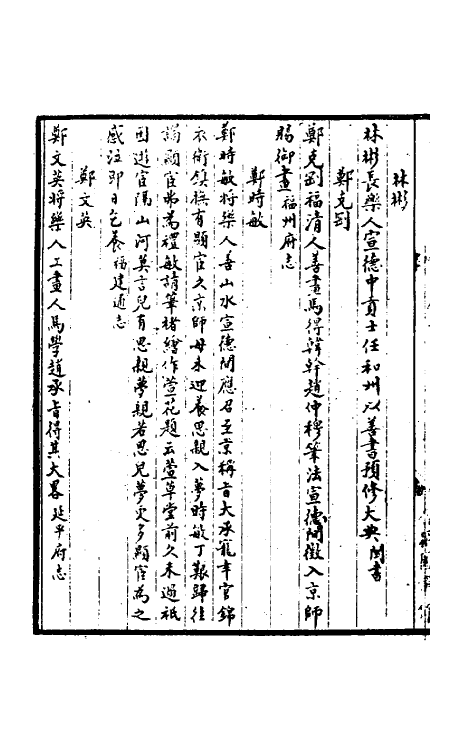 林彬
林彬長樂人宣德中貢士任和州以善書預修大典閩書
鄭克剛
鄭克剛福清人善畫馬得韓幹趙仲穆筆法宣德間徵入京師
賜御畫福州府志
鄭時敏
鄭時敏將樂人善山水宣德間應召至京稱旨大承寵幸官錦
衣衛鎮撫有顯官久京師母未迎養思親入夢時敏丁艱歸往
謁顯官弗為禮敏請筆楮繪作萱花題云萱草堂前久未過祇
因遊宦隔山河莫言兒有思親夢親若思兒夢更多顯官為之
感泣即日乞養福建通志
鄭文英
鄭文英將樂人工畫人馬學趙承旨得其大畧延平府志